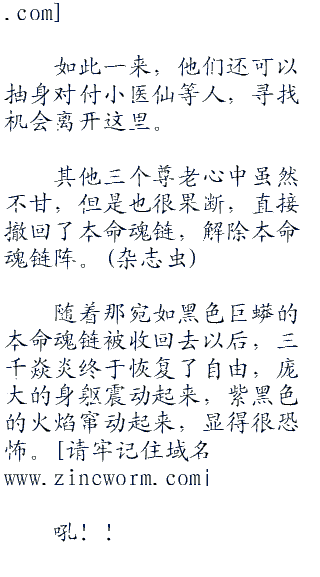 .com]
如此一来，他们还可以
抽身对付小医仙等人，寻找
机会离开这里。
其他三个尊老心中虽然
不甘，但是也很果断，直接
撤回了本命魂链，解除本命
魂链阵。(杂志虫)
随着那宛如黑色巨蟒的
本命魂链被收回去以后，三
千焱炎终于恢复了自由，庞
大的身躯震动起来，紫黑色
的火焰窜动起来，显得很恐
怖。[请牢记住域名
www.zincworm.com]
吼！！